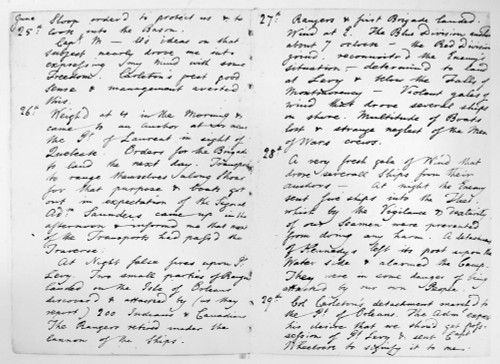 June
25th Sloop order'd to protect us & to
look into the Bason.
Capt. W— its ideas on that
subject nearly drove me into
expressing my Mind with some
Freedom. Carleton's great good
sense & management averted
this.
26th Weigh'd at 4 in the Morning &
came to an anchor at near
the Pt. of Laurent in sight of
Quebeck. Orders for the Brigade
to land the next day. Transports
to range themselves along Shoar
for that purpose & boats got
out in expectation of the Signal
Adml. Saunders came up in the
afternoon & informd me that most
of the Transports had pass'd the
Traverse.
At Night false fires upon Pt.
Levy. Two small parties of Rangrs
landed on the Isle of Orleans
discover'd & attack'd by (as they
report) 200 Indians & Canadians
The Rangers retired under the
cannon of the Ships.
27th Rangers & first Brigade landed.
Wind at E. The Blue Division
about 7 o'clock — the Red division
ground, reconnoitred the Enemy's
situation — determined to land
at Levy & below the Falls of
Montmorency — Violent gales of
wind that drove severall ships
on shore. Multitude of Boats
lost & strange neglect of the Men
of Wars crews.
28th A very fresh gale of Wind that
drove severall Ships from their
anchors — At night the Enemy
sent five ships into the Fleet,
which by the Vigilance & Dexterity
of our Seamen were prevented
from doing any harm. A detachmt
of Kennedys left its post upon the
Water side & alarmed the Camp.
They were in some danger of being
attacked by our own People.
29th Col. Carleton's detachment marched to
the Pt. of Orleans. The Adml. express'd
his desire that we should get possession
of Pt. Levy & sent Capt.
Wheelock to signify it to me.